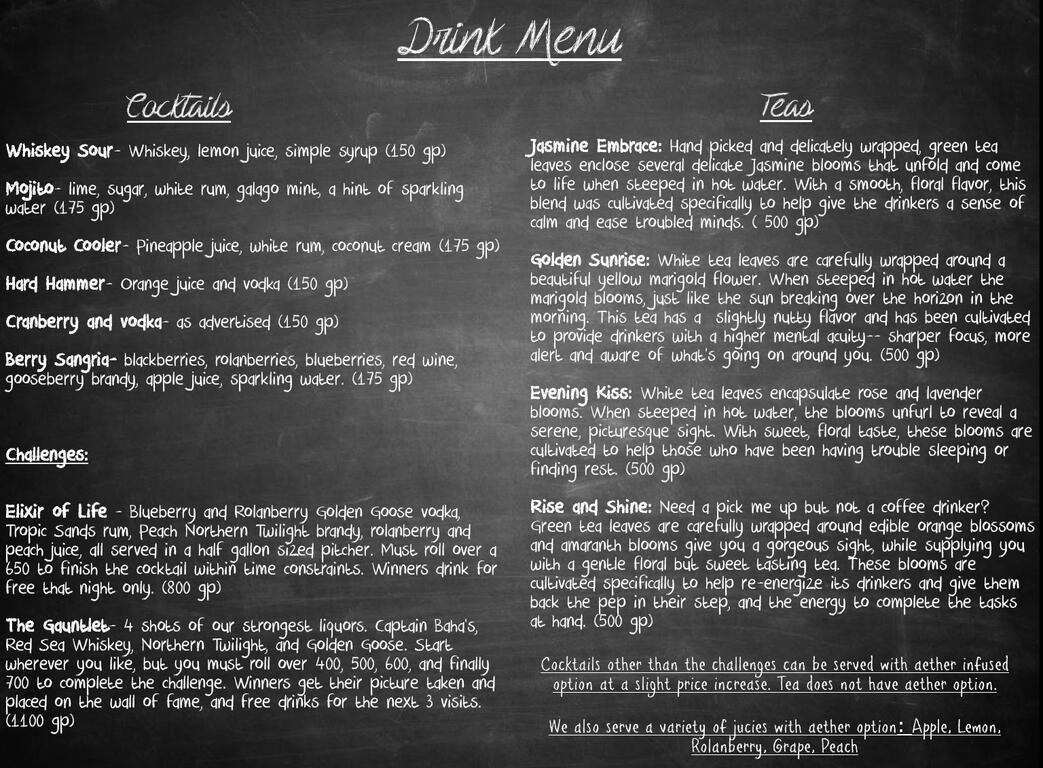 Drink Menu
Cocktails
Whiskey Sour- Whiskey, lemon juice, simple syrup (150 gp)
Mojito- lime, sugar, white rum, galago mint, a hint of sparkling
water (175 gp)
Coconut Cooler- Pineapple juice, white rum, coconut cream (175 gp)
Hard Hammer- Orange juice and vodka (150 gp)
Cranberry and vodka- as advertised (150 gp)
Berry Sangria- blackberries, rolanberries, blueberries, red wine,
gooseberry brandy, apple juice, sparkling water. (175 gp)
Challenges:
Elixir of Life - Blueberry and Rolanberry Golden Goose vodka,
Tropic Sands rum, Peach Northern Twilight brandy, rolanberry and
peach juice, all served in a half gallon sized pitcher. Must roll over a
650 to finish the cocktail within time constraints. Winners drink for
free that night only. (800 gp)
The Gauntlet- 4 shots of our strongest liquors. Captain Baha's,
Red Sea Whiskey, Northern Twilight, and Golden Goose. Start
wherever you like, but you must roll over 400, 500, 600, and finally
700 to complete the challenge. Winners get their picture taken and
placed on the wall of fame, and free drinks for the next 3 visits.
(1100 gp)
Teas
Jasmine Embrace: Hand picked and delicately wrapped, green tea
leaves enclose several delicate Jasmine blooms that unfold and come
to life when steeped in hot water. With a smooth, floral flavor, this
blend was cultivated specifically to help give the drinkers a sense of
calm and ease troubled minds. ( 500 gp)
Golden Sunrise: White tea leaves are carefully wrapped around a
beautiful yellow marigold flower. When steeped in hot water the
marigold blooms, just like the sun breaking over the horizon in the
morning. This tea has a slightly nutty flavor and has been cultivated
to provide drinkers with a higher mental acuity-- sharper focus, more
alert and aware of what's going on around you. (500 gp)
Evening Kiss: White tea leaves encapsulate rose and lavender
blooms. When steeped in hot water, the blooms unfurl to reveal a
serene, picturesque sight. With sweet, floral taste, these blooms are
cultivated to help those who have been having trouble sleeping or
finding rest. (500 gp)
Rise and Shine: Need a pick me up but not a coffee drinker?
Green tea leaves are carefully wrapped around edible orange blossoms
and amaranth blooms give you a gorgeous sight, while supplying you
with a gentle floral but sweet tasting tea. These blooms are
cultivated specifically to help re-energize its drinkers and give them
back the pep in their step, and the energy to complete the tasks
at hand. (500 gp)
Cocktails other than the challenges can be served with aether infused
option at a slight price increase. Tea does not have aether option.
We also serve a variety of jucies with aether option: Apple, Lemon,
Rolanberry, Grape, Peach